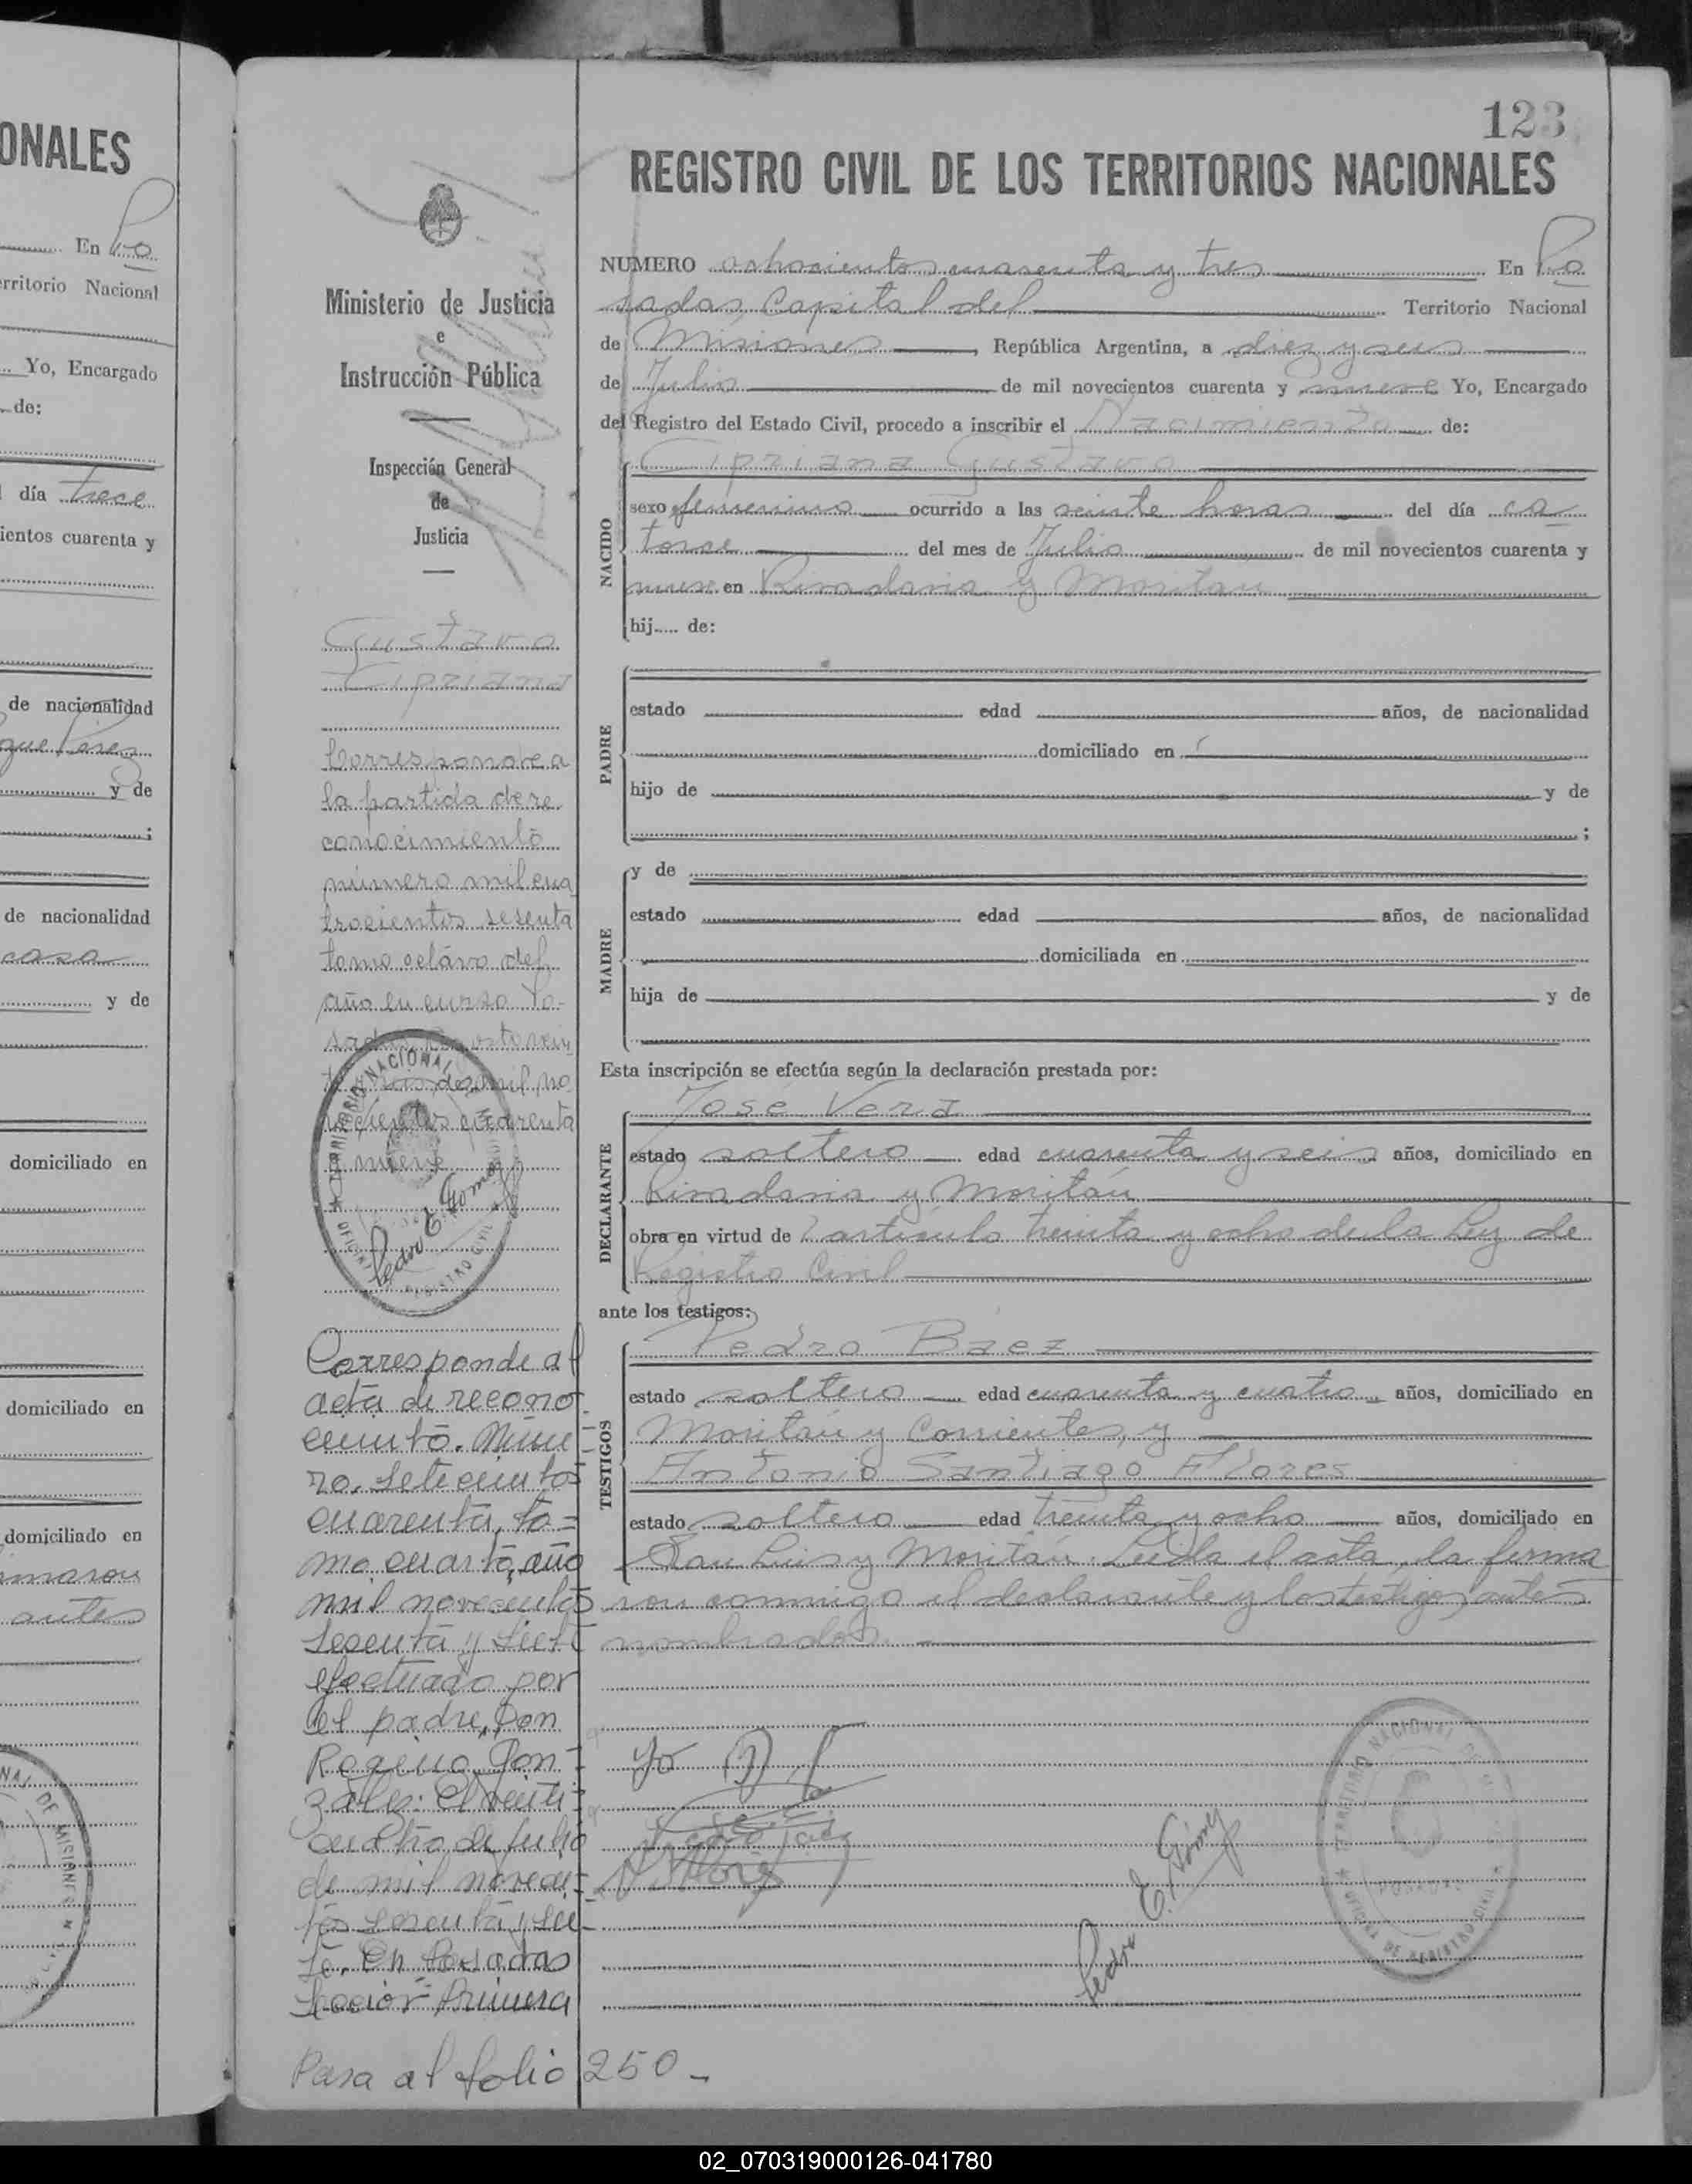 ONALES
En Po
erritorio Nacional
Yo, Encargado
de:
día trece
ientos cuarenta y
de nacionalidad
y de
;
de nacionalidad
casa
y de
domiciliado en
domiciliado en
domiciliado en
antes
123
REGISTRO CIVIL DE LOS TERRITORIOS NACIONALES
Ministerio de Justicia
e
Instrucción Pública
Inspección General
de
Justicia
Gustavo
Cipriana
Corresponde a
la partida de re
conocimiento
número mil cua
trocientos sesenta
tomo octavo del
año en curso Po-
sadas Agosto vein
de mil no
vecientos cuarenta
y nueve
Pedro E. Gomez
Corresponde al
acta de recono
cimiento. Núme
ro. setecientos
cuarenta, to=
mo cuarto, año
mil novecientos
sesenta y siete
efectuado por
el padre, Don
Gon=
zalez: El veinti=
cuatro de Julio
de mil novecien=
tos sesenta y sie-
te. En Posadas
Sección Primera
Pasa al folio 250-
NUMERO ochocientos cuarenta y tres En Po
sadas Capital del Territorio Nacional
de Misiones, República Argentina, a diez y seis
de Julio de mil novecientos cuarenta y nueve Yo, Encargado
del Registro del Estado Civil, procedo a inscribir el Nacimiento de:
NACIDO
Cipriana Gustavo
sexo femenino ocurrido a las veinte horas del día ca
torce del mes de Julio de mil novecientos cuarenta y
nueve en Rivadavia y Moritán
hij..... de:
PADRE
estado edad años, de nacionalidad
domiciliado en
hijo de y de
;
MADRE
y de
estado edad años, de nacionalidad
domiciliada en
hija de y de
Esta inscripción se efectúa según la declaración prestada por:
DECLARANTE
José Vera
estado soltero edad cuarenta y seis años, domiciliado en
Rivadavia y Moritán
obra en virtud de artículo treinta y ocho de la Ley de
Registro Civil
ante los testigos:
TESTIGOS
Pedro Baez
estado soltero edad cuarenta y cuatro años, domiciliado en
Moritán y Corrientes, y
Antonio Santiago Flores
estado soltero edad treinta y ocho años, domiciliado en
San Luis y Moritán. Leída el acta, la firma
ron conmigo el declarante y los testigos antes
nombrados.
Pedro E. Gómez
TERRITORIO NACIONAL DE MISIONES
OFICINA DE REGISTRO CIVIL
POSADAS
02_070319000126-041780